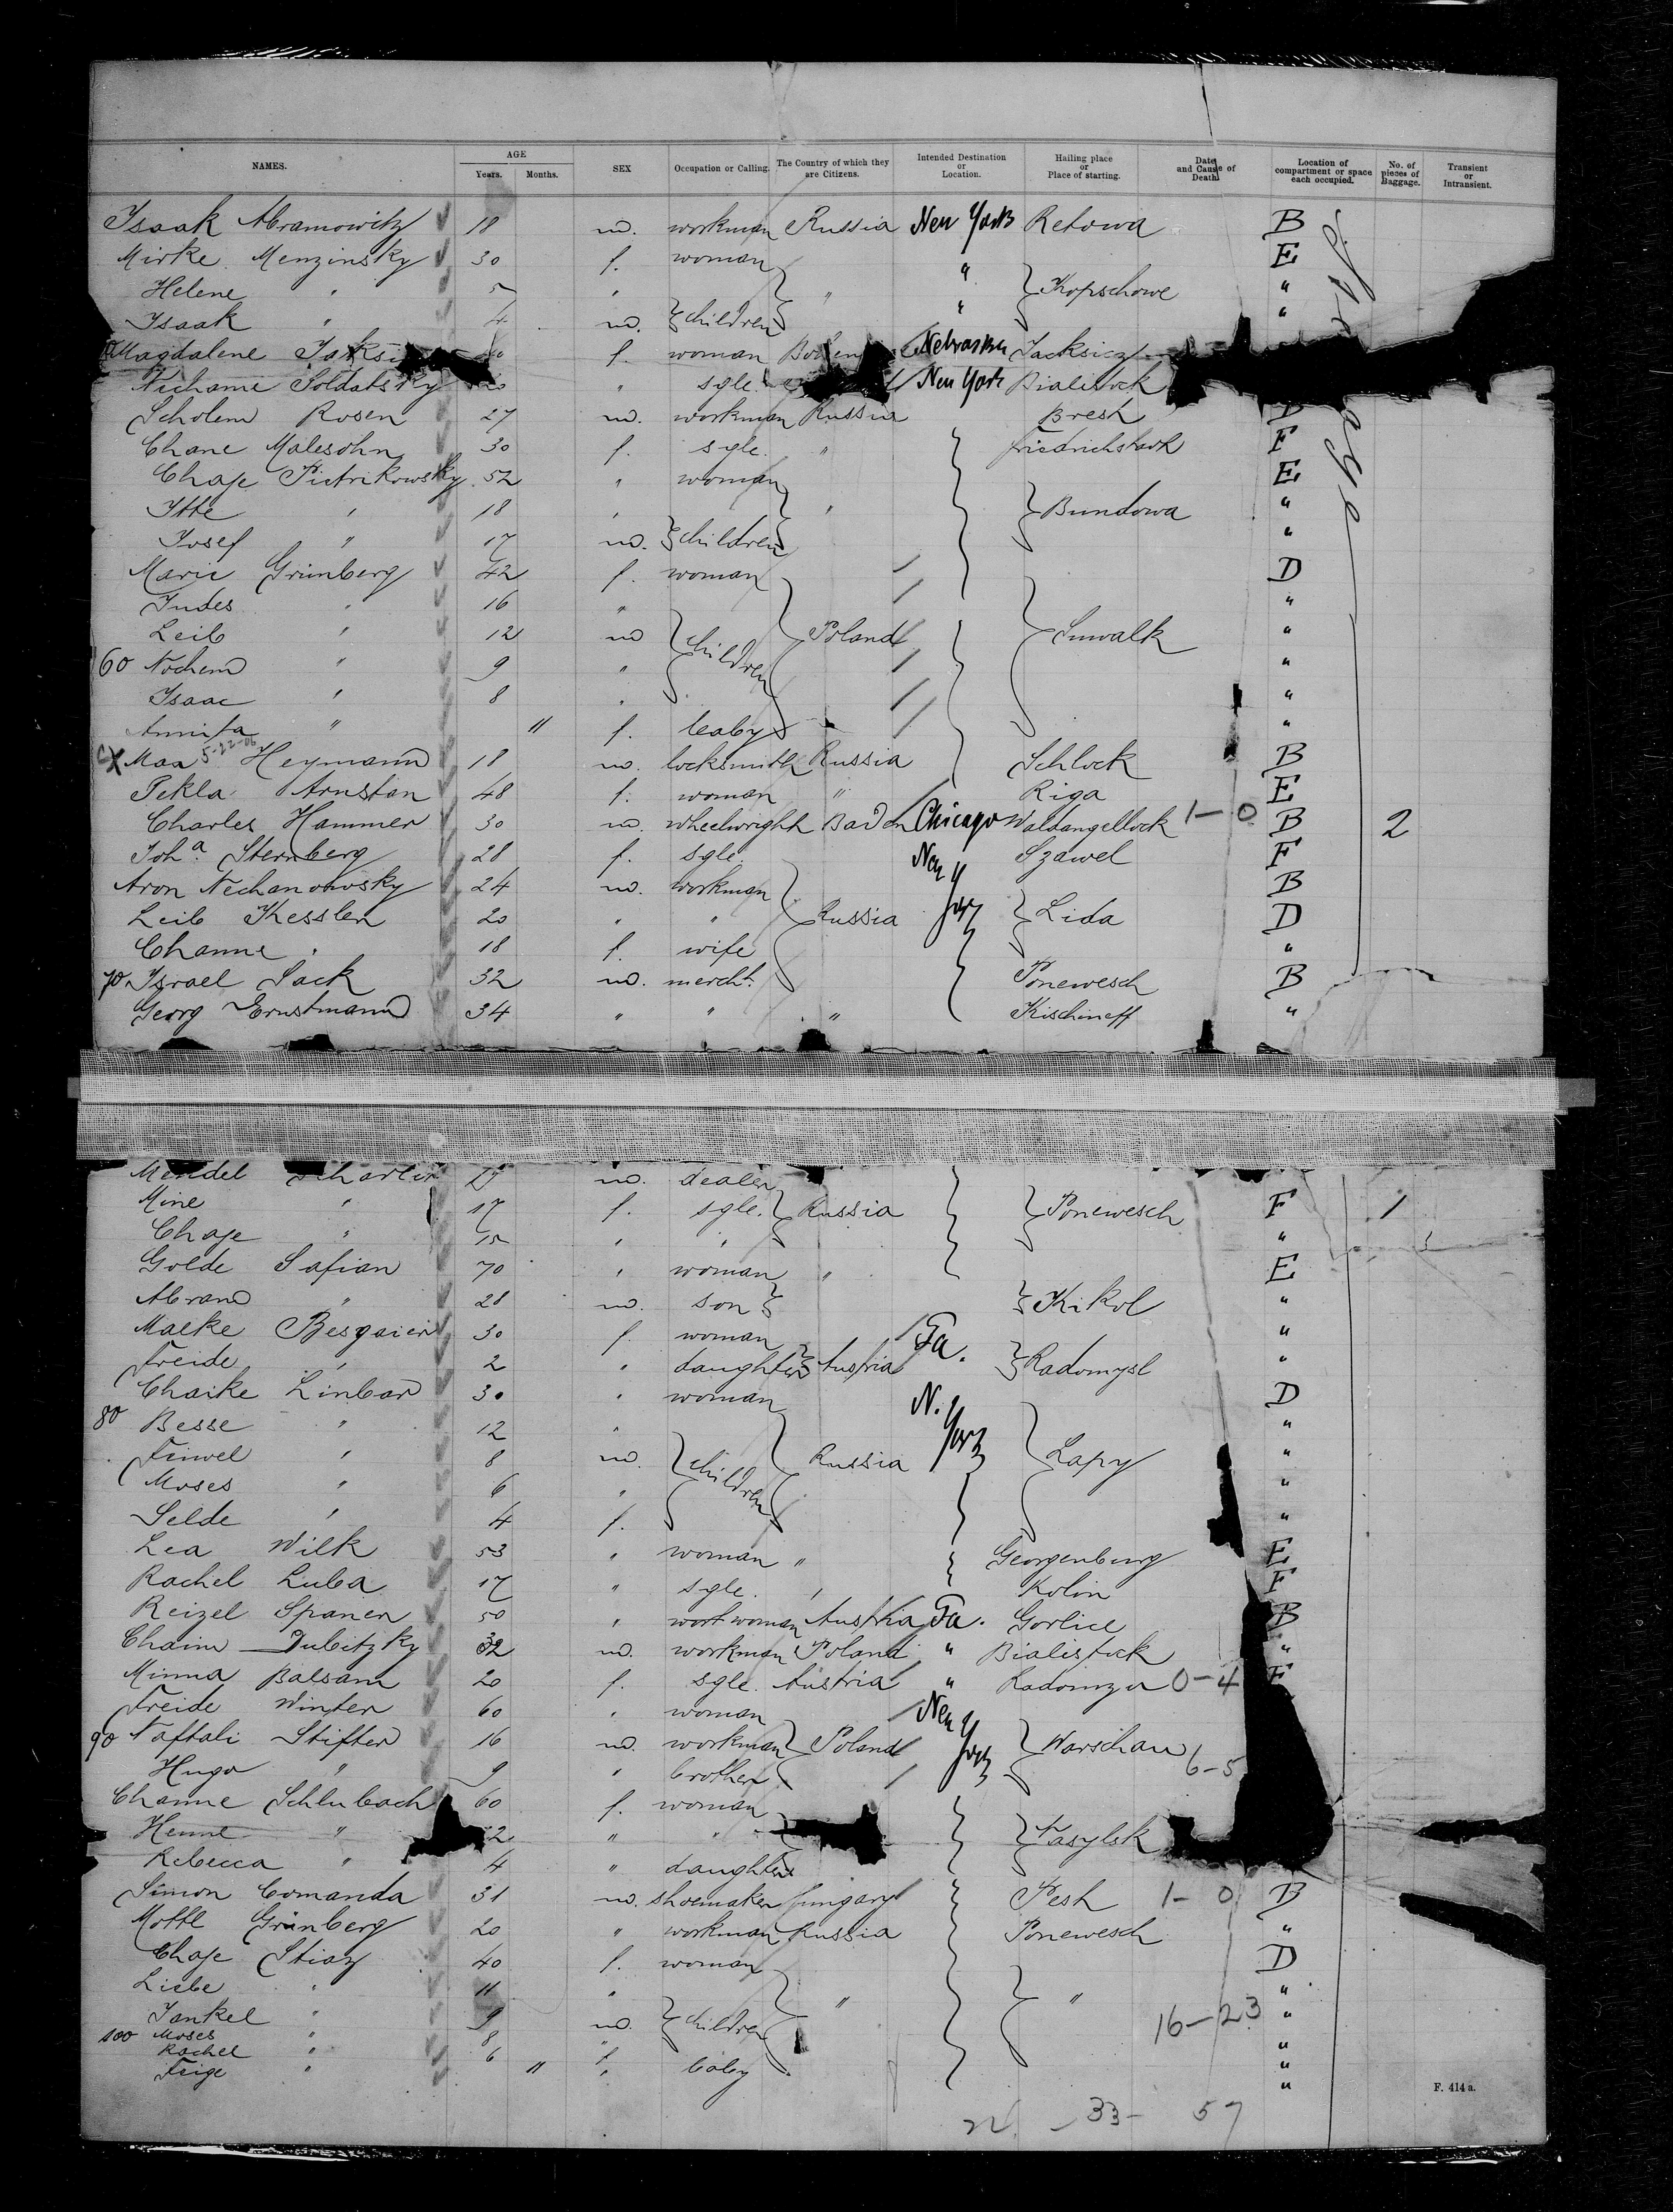 NAMES. AGE Years. Months. SEX Occupation or Calling. The Country of which they are Citizens. Intended Destination or Location. Hailing place or Place of starting. Date and Cause of Death. Location of compartment or space each occupied. No. of pieces of Baggage. Transient or Intransient.
Isaak Abramowitz 18 m. workman Russia New York Retowa B
Mirke Menzinsky 30 f. woman " E
Helene " 5 " " " Kopschowe "
Isaak " 4 m. children "
Magdalene f. woman Nebraska Jacksicz
Nichame Soldatsky " sgle. New York Bialistock
Scholem Rosen 27 m. workman Russia Brest
Chane Malesohn 30 f. sgle. " Friedrichstadt F
Chaje Pietrikowsky 52 " woman E
Itte " 18 " " Bundowa "
Josef " 17 m. children "
Marie Grünberg 42 f. woman D
Judes " 16 " "
Leib " 12 m children Poland Suwalk "
60 Nochem " 9 " "
Isaac " 8 " "
" 11 f. baby "
Max 5-22-06 Heymann 18 m. locksmith Russia Schlock B
Tekla Arnstan 48 f. woman " Riga E
Charles Hammer 30 m. wheelwright Baden Chicago Waldangelloch 1-0 B 2
Joha. Sternberg 28 f. sgle. New York Szawel F
Aron Nechanowsky 24 m. workman B
Leib Kessler 20 " " Russia Lida D
Channe " 18 f. wife "
70 Israel Sack 32 m. mercht. Ponewesch B
Georg Ernstmann 34 " " " Kischineff "
Mendel 27 m. dealer
Mine " 17 f. sgle. Russia Ponewesch F 1
Chaje " 15 " " "
Golde Safian 70 " woman " E
Abram " 28 m. son Kikol "
Malke Besgaier 30 f. woman Pa. "
Freide " 2 " daughter Austria Radomysl "
Chaike Linbad 30 " woman N. York D
80 Besse " 12 " "
Feiwel " 8 m. children Russia Lapy "
Moses " 6 " "
Selde " 4 f. "
Lea Wilk 53 " woman " Georgenburg E
Rachel Luba 17 " sgle. " Kolin F
Reizel Spaner 50 " workwoman Austria Pa. Gorlice B
Chaim Dubitzky 32 m. workman Poland " Bialistock "
Minna Balsam 20 f. sgle. Austria " 0-4 F
Freide Winter 60 " woman New York
90 Naftali Stifter 16 m. workman Poland Warschau
Hugo " 9 " brother 6-5
Channe Schlubach 60 f. woman
Henne " 2 " " Wasylsk
Rebecca " 4 " daughter
Simon Comanda 31 m. shoemaker Hungary Pest 1-0 B
Mottl Grünberg 20 " workman Russia Ponewesch "
Chaje Stiaz 40 f. woman D
Liebe " 11 " " " "
Jankel " 9 m. children 16-23 "
100 Moses " 8 " "
Rachel " 6 f. "
Feige " 11 " baby "
F. 414 a.
33- 57